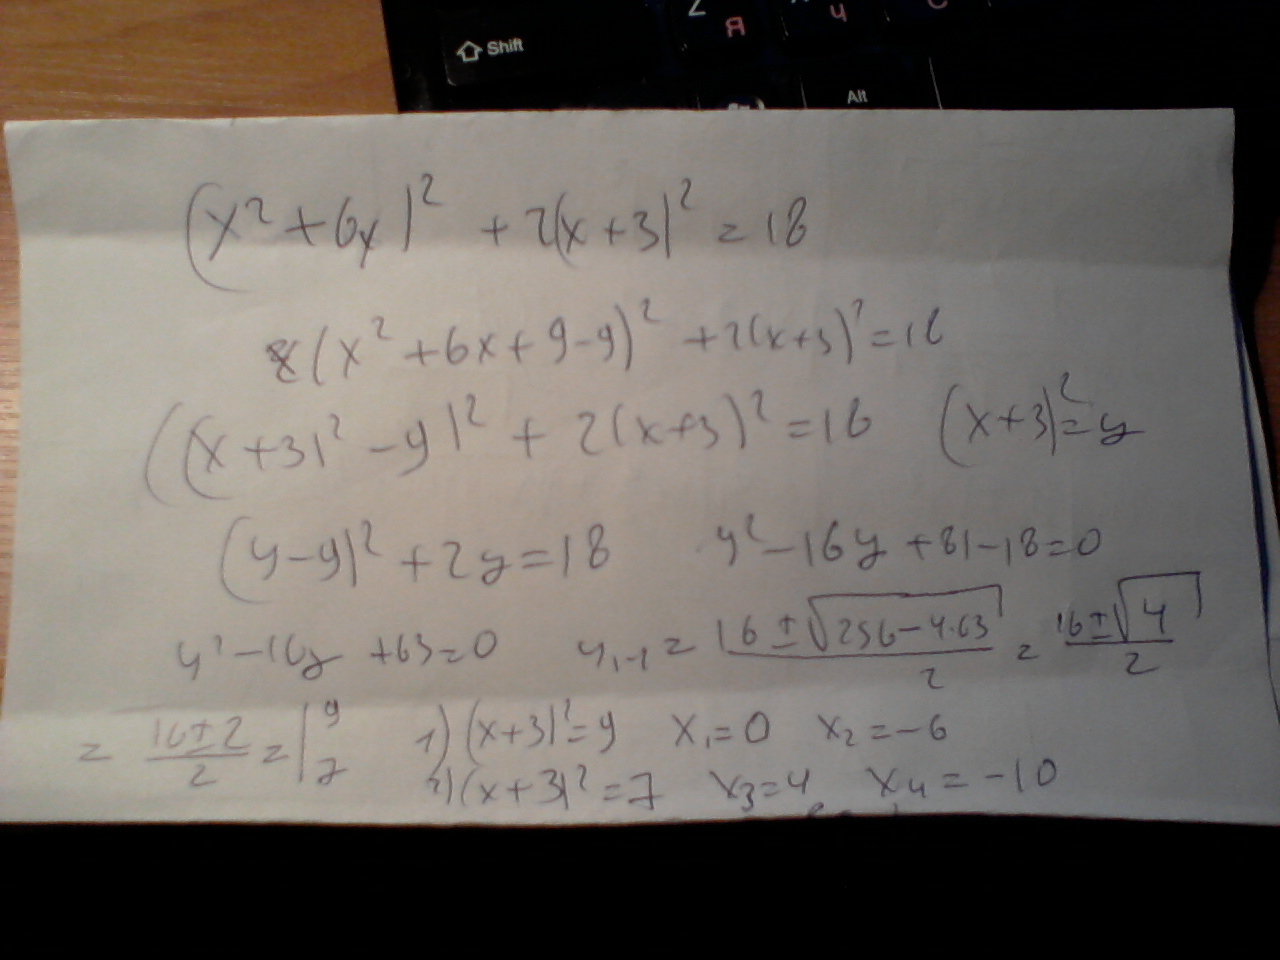 Я
Ч
С
Shift
Alt
(x² + 6x)² + 2(x + 3)² = 18
(x² + 6x + 9 - 9)² + 2(x+3)² = 18
((x + 3)² - 9)² + 2(x+3)² = 18 (x + 3)² = y
(y - 9)² + 2y = 18 y² - 16y + 81 - 18 = 0
y² - 16y + 63 = 0 y₁,₂ = (16 ± √(256 - 4·63))/2 = (16 ± √4)/2
= (16 ± 2)/2 = | 9 7 1) (x+3)² = 9 x₁ = 0 x₂ = -6
2) (x + 3)² = 7 x₃ = 4 x₄ = -10